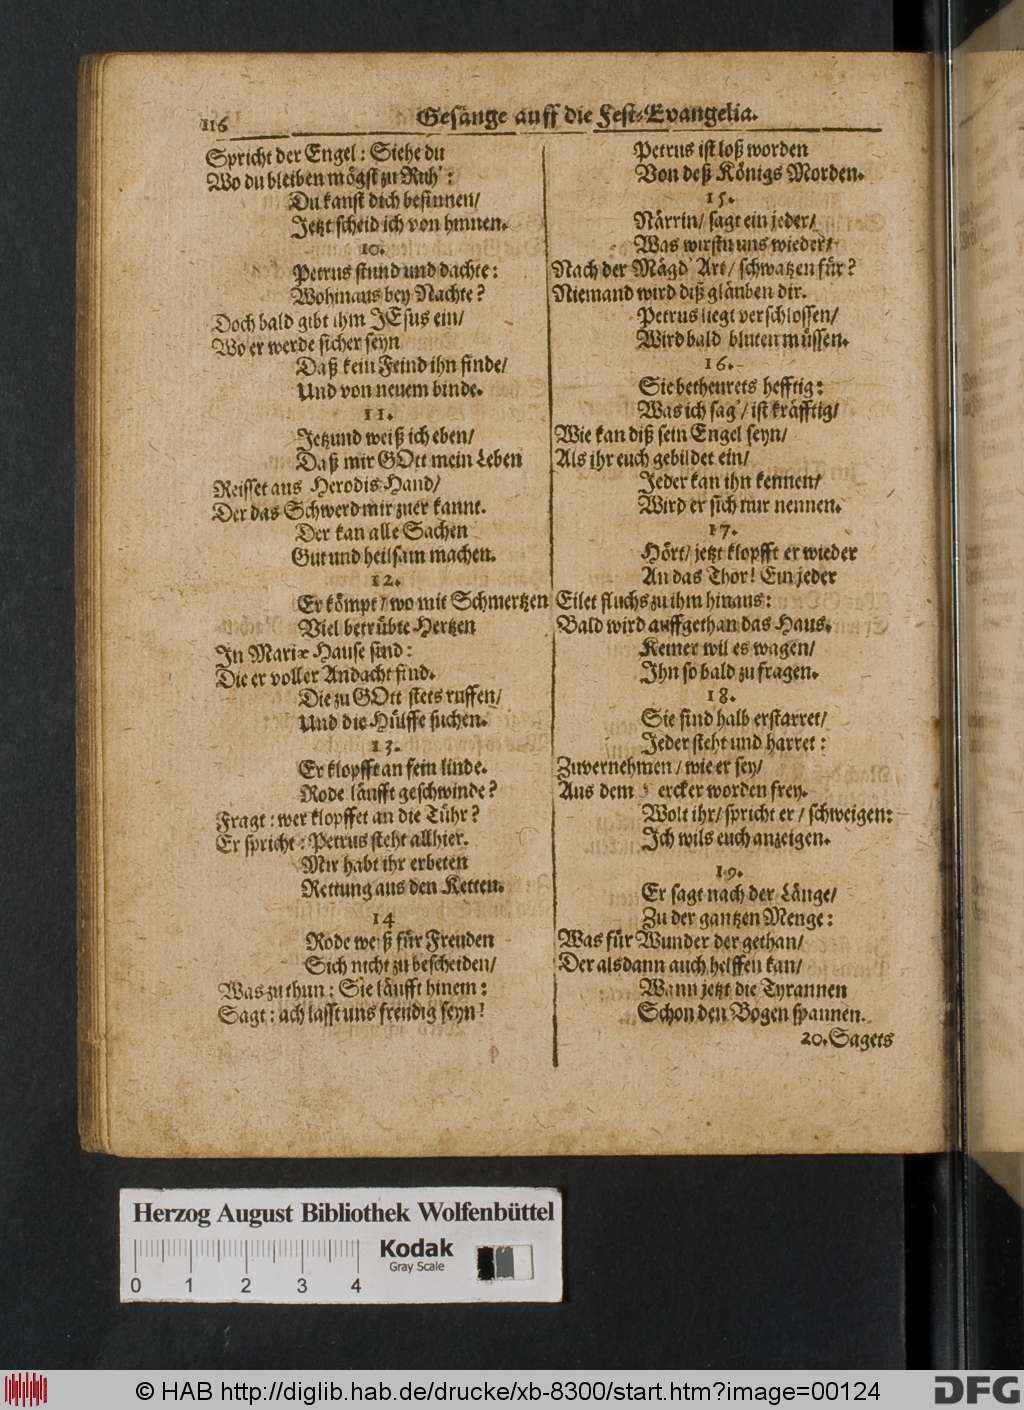 116 Gesänge auff die Fest-Evangelia.
Spricht der Engel: Siehe du
Wo du bleiben mögst zu Ruh':
Du kanst dich besinnen/
Jetzt scheid ich von hinnen.
10.
Petrus stund und dachte:
Wohinaus bey Nachte?
Doch bald gibt ihm JEsus ein/
Wo er werde sicher seyn
Daß kein Feind ihn finde/
Und von neuem binde.
11.
Jetzund weiß ich eben/
Daß mir GOtt mein Leben
Reisset aus Herodis Hand/
Der das Schwerd mir zuer kannt.
Der kan alle Sachen
Gut und heilsam machen.
12.
Er kömpt/ wo mit Schmertzen
Viel betrübte Hertzen
In Mariæ Hause sind:
Die er voller Andacht find.
Die zu GOtt stets ruffen/
Und die Hülffe suchen.
13.
Er klopfft an fein linde.
Rode läufft geschwinde?
Fragt: wer klopffet an die Tühr?
Er spricht: Petrus steht allhier.
Mir habt ihr erbeten
Rettung aus den Ketten.
14
Rode weiß für Freuden
Sich nicht zu bescheiden/
Was zu thun: Sie läufft hinein:
Sagt: ach lasst uns freudig seyn!
Petrus ist loß worden
Von deß Königs Morden.
15.
Närrin/ sagt ein jeder/
Was wirstu uns wieder/
Nach der Mägd' Art/ schwatzen für?
Niemand wird diß gläuben dir.
Petrus liegt verschlossen/
Wird bald bluten müssen.
16.
Sie betheurets hefftig:
Was ich sag'/ ist kräfftig/
Wie kan diß sein Engel seyn/
Als ihr euch gebildet ein/
Jeder kan ihn kennen/
Wird er sich nur nennen.
17.
Hört/ jetzt klopfft er wieder
An das Thor! Ein jeder
Eilet fluchs zu ihm hinaus:
Bald wird auffgethan das Haus.
Keiner wil es wagen/
Ihn so bald zu fragen.
18.
Sie sind halb erstarret/
Jeder steht und harret:
Zuvernehmen/ wie er sey/
Aus dem ercker worden frey.
Wolt ihr/ spricht er/ schweigen:
Ich wils euch anzeigen.
19.
Er sagt nach der Länge/
Zu der gantzen Menge:
Was für Wunder der gethan/
Der alsdann auch helffen kan/
Wann jetzt die Tyrannen
Schon den Bogen spannen.
20. Sagets
Herzog August Bibliothek Wolfenbüttel
Kodak
Gray Scale
0 1 2 3 4
© HAB http://diglib.hab.de/drucke/xb-8300/start.htm?image=00124
DFG